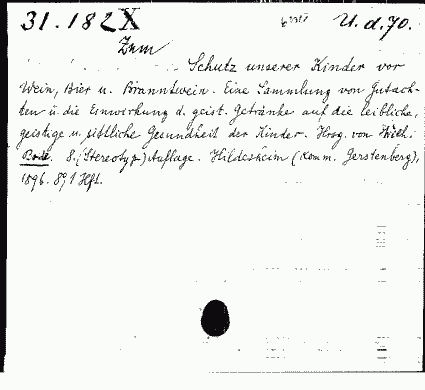 31.182X U.d.70.
Zum
Schutz unserer Kinder vor
Wein, Bier u. Branntwein. Eine Sammlung von Gutach-
ten ü. die Einwirkung d. geist. Getränke auf die leibliche,
geistige u. sittliche Gesundheit der Kinder. Hrsg. von Wilh.
Bode. 8. (Stereotyp-) Auflage. Hildesheim (Komm. Gerstenberg),
1896. 8, 1 Hft.